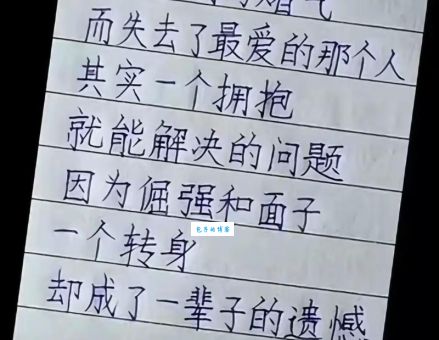 而失去了最爱的那个人
其实一个拥抱
就能解决的问题
因为倔强和面子
包子的博客
一个转身
却成了一辈子的遗憾